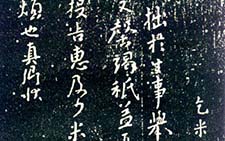 乞米
拙於生事舉
又罄竭祗益
投告惠及少米
煩也真卿狀